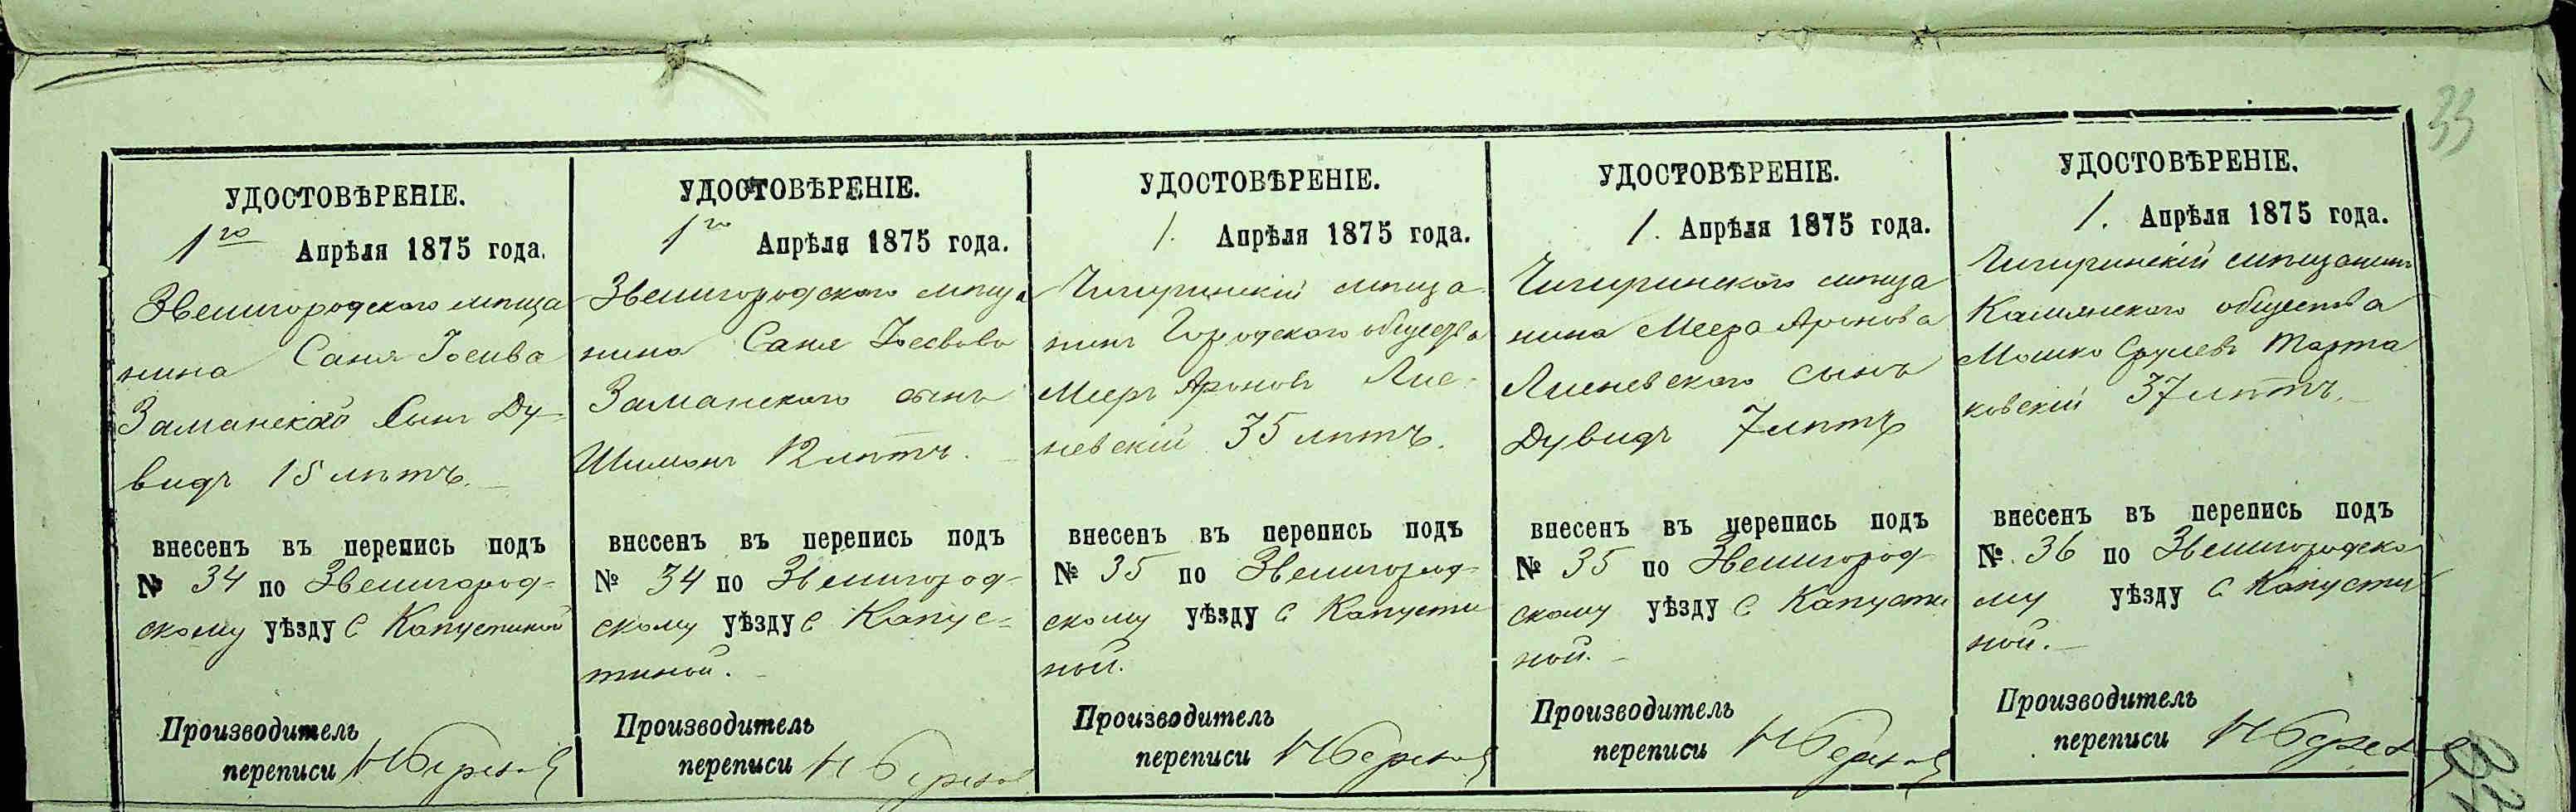 33
УДОСТОВѢРЕНІЕ.
1го Апрѣля 1875 года.
Звенигородского мѣща
нина Саня Іосива
Заманского Сынъ Ду-
видъ 15 лѣтъ.
внесенъ въ перепись подъ
№ 34 по Звенигород-
скому уѣзду С Капустиной
Производитель
переписи
УДОСТОВѢРЕНІЕ.
1го Апрѣля 1875 года.
Звенигородского мѣща
нина Саня
Заманского сынъ
Шимонъ 12 лѣтъ.
внесенъ въ перепись подъ
№ 34 по Звенигород-
скому уѣзду С Капус-
тиной.
Производитель
переписи
УДОСТОВѢРЕНІЕ.
1. Апрѣля 1875 года.
Чигиринскій мѣща
нинъ Городского общества
Мееръ Ароновъ Лис-
невскій 35 лѣтъ.
внесенъ въ перепись подъ
№ 35 по Звенигород-
скому уѣзду С Капусти
ной.
Производитель
переписи
УДОСТОВѢРЕНІЕ.
1. Апрѣля 1875 года.
Чигиринского мѣща
нина Меера Аронова
Лисневского сынъ
Дувидъ 7 лѣтъ
внесенъ въ перепись подъ
№ 35 по Звенигород-
скому уѣзду С Капусти
ной.
Производитель
переписи
УДОСТОВѢРЕНІЕ.
1. Апрѣля 1875 года.
Чигиринскій мѣщанинъ
Камянского общества
Мошко Срулевъ Тарта
ковскій 37 лѣтъ.
внесенъ въ перепись подъ
№ 36 по Звенигородско
му уѣзду С Капусти
ной.
Производитель
переписи